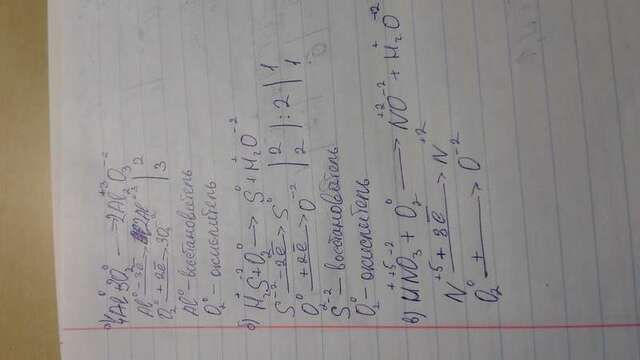 а) 4Al⁰ 3O₂⁰ → 2Al₂⁺³O₃⁻²
Al⁰ -3e → 2Al⁺³ | 2
O₂⁰ +2e → 3O⁻² | 3
Al⁰ - восстановитель
O₂⁰ - окислитель
б) H₂⁺S⁻² + O₂⁰ → S⁰ + H₂⁺O⁻²
S⁻² -2e → S⁰ | 2 | : 2 | 1
O⁰ +2e → O⁻² | 2 | 1
S⁻² - восстановитель
O₂⁰ - окислитель
в) H⁺N⁺⁵O₃⁻² + O₂⁰ → N⁺²O⁻² + H₂⁺O⁻²
N⁺⁵ + 3e → N⁺²
O₂⁰ + → O⁻²